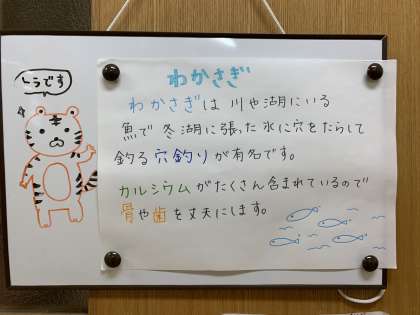 とらです
わかさぎ
わかさぎは川や湖にいる
魚で冬湖に張った氷に穴をたらして
釣る穴釣りが有名です。
カルシウムがたくさん含まれているので
骨や歯を丈夫にします。